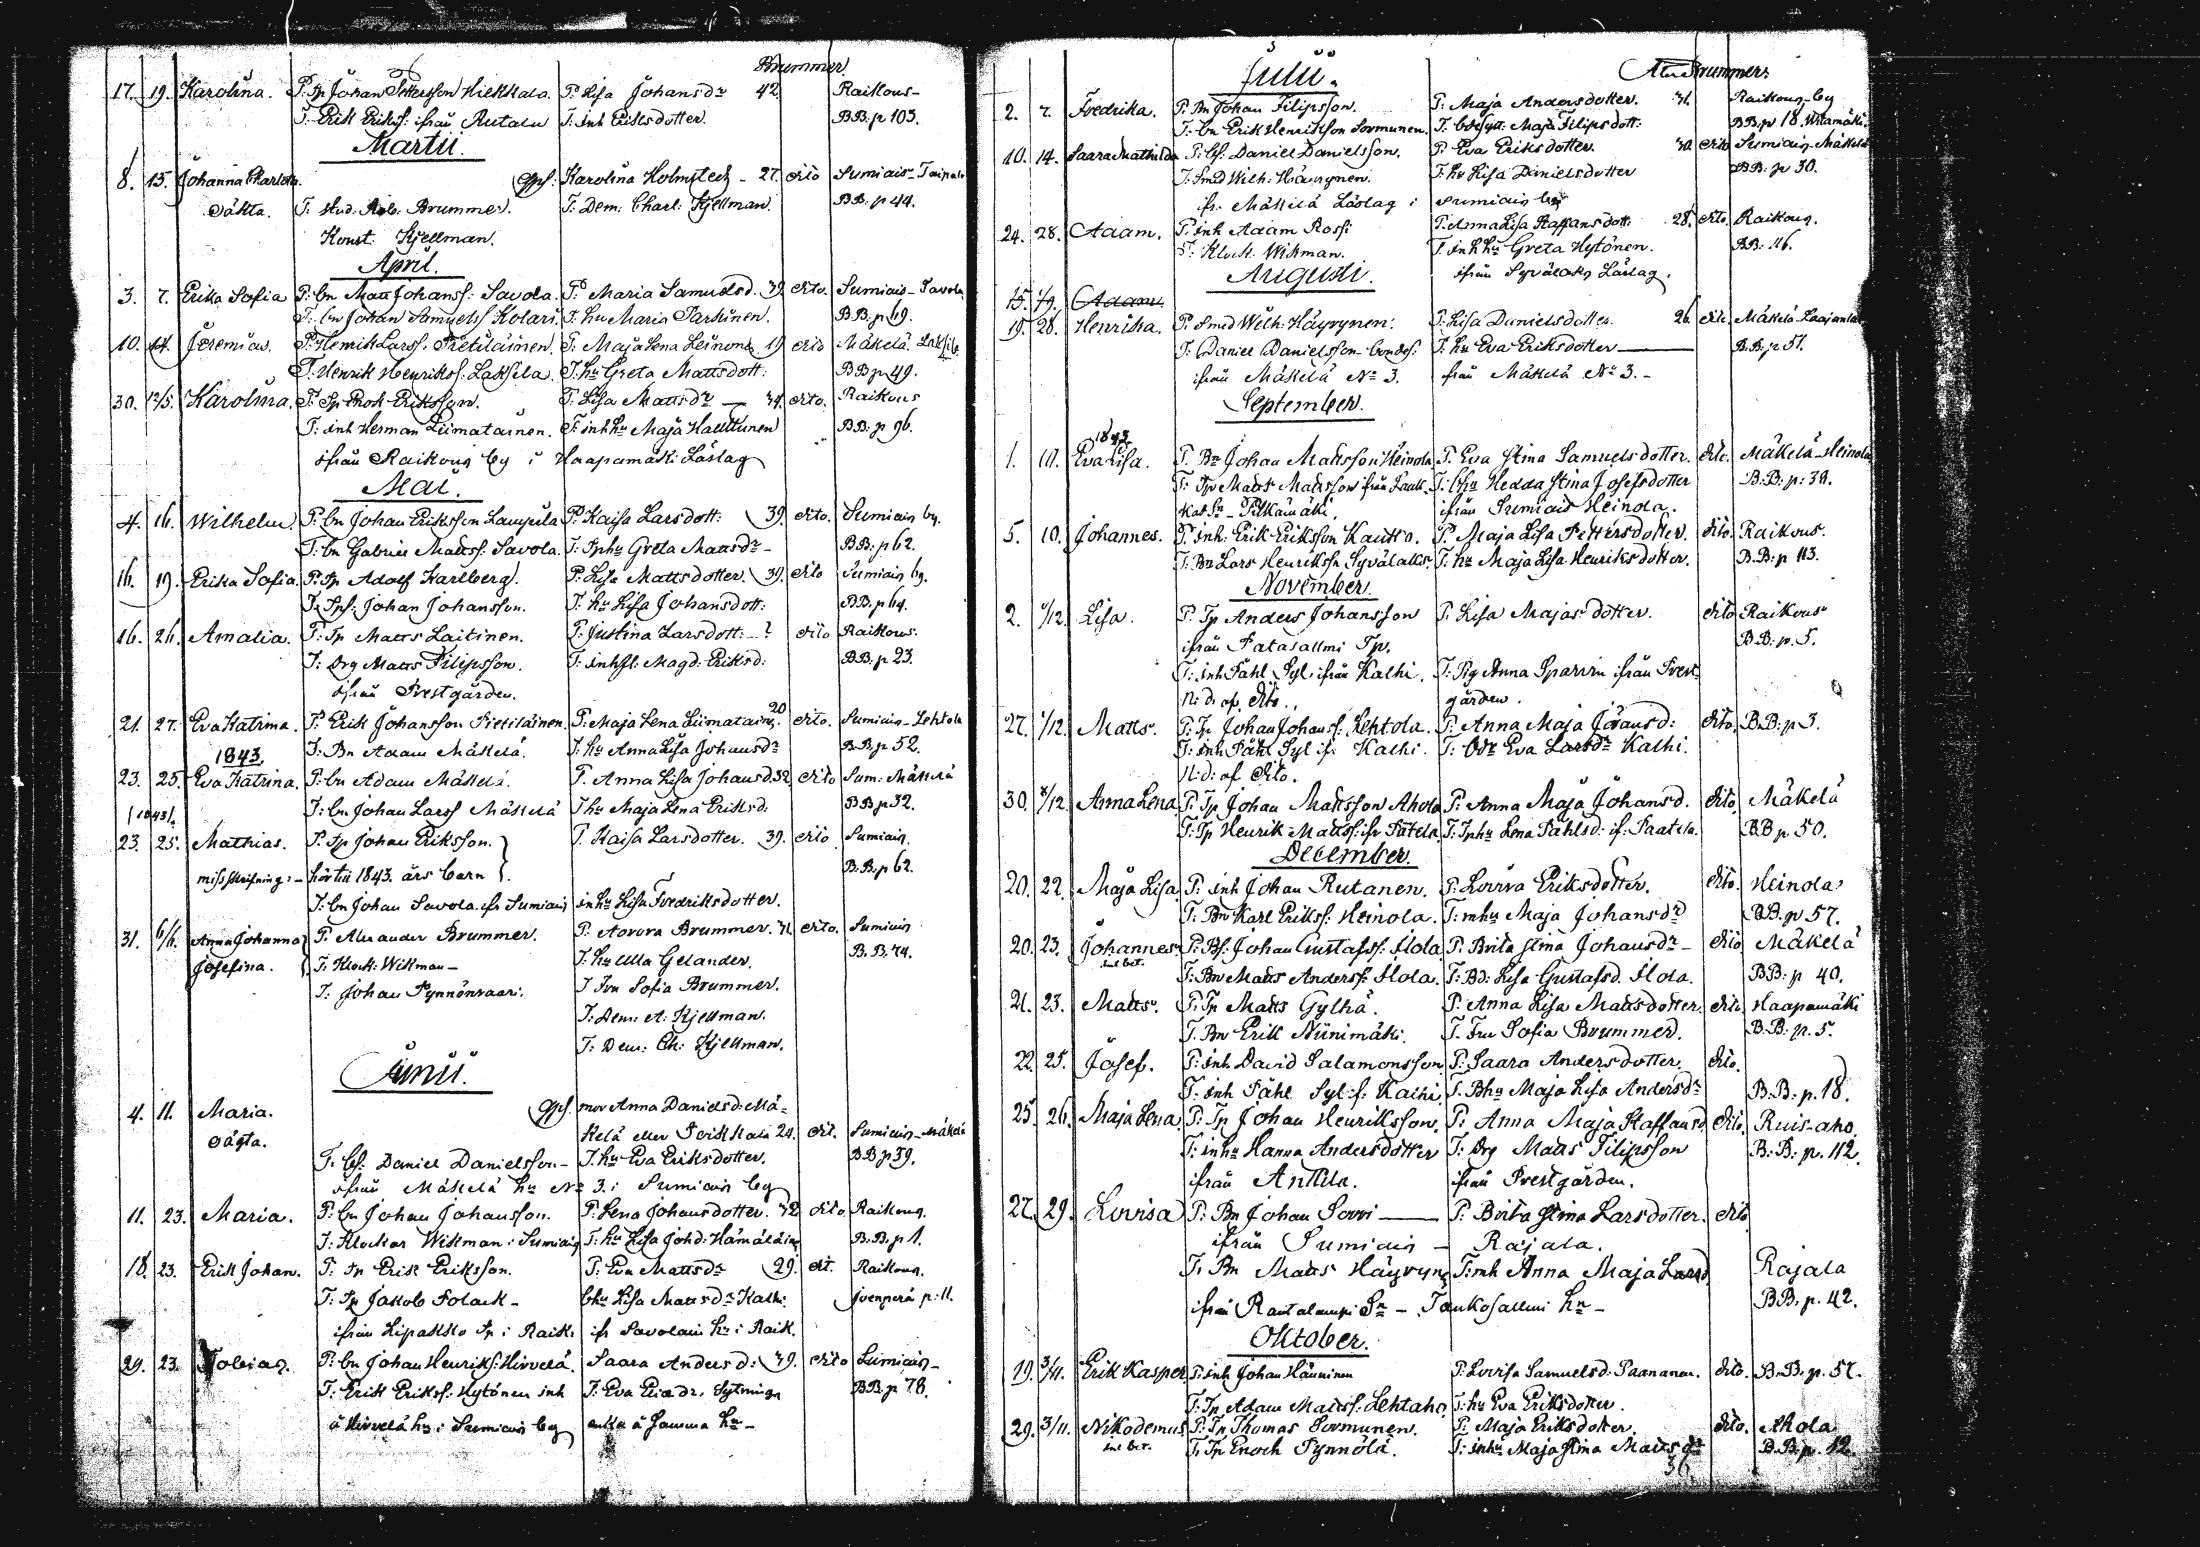 Brummer
17. 19. Karolina. P: Tp Johan Pettersson Kiekkala. P: Lisa Johansdr 42. Raikous-
T: Erik Erikss: ifrån Rutalu T: inh Eriksdotter. BB. p 103.
Martii.
8. 15. Johanna Charlotta. Karolina Holmstedt - 27. dito Sumiais-
oäkta. T: Stud: Brummer. T: Dem: Charl: Kjellman. BB. p 44.
Konst: Kjellman.
April.
3. 7. Erika Sofia P: bn Matt Johanss: Savola. P: Maria Samuelsd. 39. dito. Sumiais-Savola
T: bn Johan Samuelss Kolari. T: hu Maria Parkinen. B.B. p 69.
10. 14. Jeremias. P: Henrik Larss. Pietiläinen. P: Maja Lena Leinona 19 dito Mäkelä
T: Henrik Henrikss: Laksela. T: hu Greta Mattsdott: BB p 49.
30. 12/5. Karolina. P: Tp Enok Eriksson. P: Lisa Mattsdr 34. dito. Raikous
T: inh Herman Liimatainen. T: inh hu Maja Hakkunen BB: p 96.
ifrån Raikous by i Haapamäki Läslag
Mai.
4. 16. Wilhelm. P: bn Johan Eriksson Lampila P: Kaisa Larsdott: 39. dito. Sumiais by.
T: bn Gabriel Matts: Savola. T: Tphu Greta Mattsdr- BB: p 62.
16. 19. Erika Sofia. P: Tp Adolf Karlberg. P: Lisa Mattsdotter 39. dito Sumiais by.
T: Tps: Johan Johansson. T: hu Lisa Johansdott: BB. p 64.
16. 26. Amalia. P: Tp Matts Laitinen. P: Justina Larsdott: - ? dito Raikous.
T: Drg Matts Filipsson. T: Magd: Eriksd: BB: p 23.
ifrån Prestgården.
21. 27. Eva Katrina. P: Erik Johansson Pietiläinen. P: Maja Lena Liimatain 20 dito. Sumiais-Lehtola
1843. T: Bn Adam Mäkelä. T: hu Anna Lisa Johansdr B.B. p 52.
23. 25. Eva Katrina. P: bn Adam Mäkelä. P: Anna Lisa Johansd. 32 dito Sum: Mäkelä
/1843/. T: bn Johan Larss Mäkelä T: hu Maja Lena Eriksd: BB p 32.
23. 25. Mathias. P: Tp Johan Eriksson. P: Kaisa Larsdotter. 39. dito Sumiais.
misskrifning: - hör till 1843. års barn B.B: p 62.
T: bn Johan Savola ifr Sumiais inhu Lisa Fredriksdotter.
31. 6/6. Anna Johanna P: Alexander Brummer. P: Aorora Brummer. 31. dito. Sumiais
Josefina. T: Klock: Wikman- T: hu Ulla Gelander. B.B. 74.
T: Johan Pynnönvaari. T Fru Sofia Brummer.
T: Dem: A: Kjellman.
T: Dem: Ch: Kjellman.
Junii.
4. 11. Maria. mor Anna Danielsd: Mä=
oägta. kelä eller 24. dit. Sumiais-Mäkelä
T: bs: Daniel Danielsson- T: hu Eva Eriksdotter. BB p 39.
ifrån Mäkelä hn No 3. i Sumiais by
11. 23. Maria. P: bn Johan Johansson. P: Lena Johansdotter. 42 dito Raikous.
T: Klockar Wikman i Sumiais T: hu Lisa Johd: Hämäläin B.B. p 1.
18. 23. Erik Johan. P: Tp Erik Eriksson. P: Eva Mattsdr 29. dit. Raikous.
T: Tp Jakob Polack- bhu Lisa Mattsdr Kalki. p: 11.
ifrån Lipakko Tp i Raik. ifr Savolain hn i Raik.
29. 23. Tobias. P: bn Johan Henrikss: Hirvelä. Saara Andersd: 39. dito Sumiais-
T: Erik Erikss: Hytönen inh T: Eva BB. p 78.
å Hirvelä hn i Sumiais by enka å samma hn-
Julii. Brummer.
2. 7. Fredrika. P: Bn Johan Filipsson. P: Maja Andersdotter. 31. Raikous-by
T: bn Erik Henriksson Sormunen. T: Maja Filipsdott: BB. p 18.
10. 14. Saara Mathilda P: bs: Daniel Danielsson. P: Eva Eriksdotter. 30. dito Sumiais-Mäkelä
T: Smed Wilh: Häyrynen. T: hu Lisa Danielsdotter BB: p 30.
fr. Mäkelä Läslag i Sumiais by
24. 28. Adam. P: inh Adam Rossi P: Anna Lisa Staffansdott: 28. dito. Raikous.
T: Klock. Wikman. T: inh hu Greta Hytönen. BB: 116.
Augusti. ifrån Syvälaks Läslag.
15. 19. Adam.
19. 28. Henrika. P: Smed Wilh: Häyrynen. P: Lisa Danielsdotter. 26. dito. Mäkelä
T: Daniel Danielsson bondes: T: hu Eva Eriksdotter B.B. p 51.
ifrån Mäkelä No 3. från Mäkelä No 3.-
September.
1843
1. 10. Eva Lisa. P: Bn Johan Mattsson Heinola P: Eva Stina Samuelsdotter. dito. Mäkelä-Heinola
T: Tp Matts Mattsson från Laukk- T: bhu Hedda Stina Josefsdotter B.B: p: 38.
kas Sn - Pitkämäki. ifrån Sumiais Heinola.
5. 10. Johannes. P: inh: Erik Eriksson Kautto. P: Maja Lisa Pettersdotter. dito. Raikous.
T: Bn Lars Henrikssn Syvälaks. T: hu Maja Lisa Henriksdotter. B.B: p 113.
November.
2. 1/12. Lisa. P: Tp Anders Johansson P: Lisa Majasdotter. dito Raikous
ifrån Patasallmi Tp. B.B: p. 5.
T: inh Påhl Syl. ifrån Kalhi. T: Pig Anna Sparvin ifrån Prest-
N: d: af dito. gården.
27. 1/12. Matts. P: Tp Johan Johanss: Lehtola. P: Anna Maja Göransd: dito. B.B: p 3.
T: inh Påhl Syl if: Kalhi. T: Bdr Eva Larsdr Kalhi.
N: d: af dito.
30. 8/12. Anna Lena P: Tp Johan Mattsson Ahola P: Anna Maja Johansd. dito Mäkelä
T: Tp Henrik Matts: ifr Patela. T: Tphu Lena Påhlsd: if: Paatela. BB p 50.
December.
20. 22. Maja Lisa P: inh Johan Rutanen. P: Lovisa Eriksdotter. dito. Heinola
T: Bn Karl Erikss: Heinola. T: mhu Maja Johansdr BB. p 57.
20. 23. Johannes P: Bs: Johan Gustafss: Ilola P: Brita Stina Johansdr- dito Mäkelä
inl bet. T: Bn Matts Anderss: Ilola. T: Bd: Lisa Gustafsd. Ilola. BB: p 40.
21. 23. Matts. P: Tp Matts Gylhä. P: Anna Lisa Mattsdotter. dito Haapamäki
T: Bn Erik Niinimäki. T: Fru Sofia Brummer. B.B: p. 5.
22. 25. Josef. P: inh David Salamonsson P: Saara Andersdotter. dito.
T: inh Påhl Syl: f: Kalhi. T: Bhu Maja Lisa Andersdr B.B: p. 18.
25. 26. Maja Lena P: Tp Johan Henriksson. P: Anna Maja Staffansd dito. Ruis-aho
T: inhu Hanna Andersdotter T: Drg Matts Filipsson B.B: p. 112.
ifrån Anttila. ifrån Prestgården.
27. 29. Lovisa P: Bn Johan Sorri P: Brita Stina Larsdotter. dito
ifrån Sumiais - Rajala.
T: Bn Matts Häyryn T: mh Anna Maja Larsd Rajala
ifrån Rautalampi Sn - Tankosallmi hn- BB: p. 42.
Oktober.
19. 3/11. Erik Kasper P: inh Johan Hänninen P: Lovisa Samuelsd: Paananen. dito. B.B: p. 57.
T: Tp Adam Mattss: Lehtaho T: hu Eva Eriksdotter.
29. 3/11. Nikodemus P: Tp Thomas Sormunen. P: Maja Eriksdotter. dito. Ahola
inl bet. T: Tp Enoch Pynnölä. T: inhu Maja Stina Mattsdr B.B: p. 12.
36